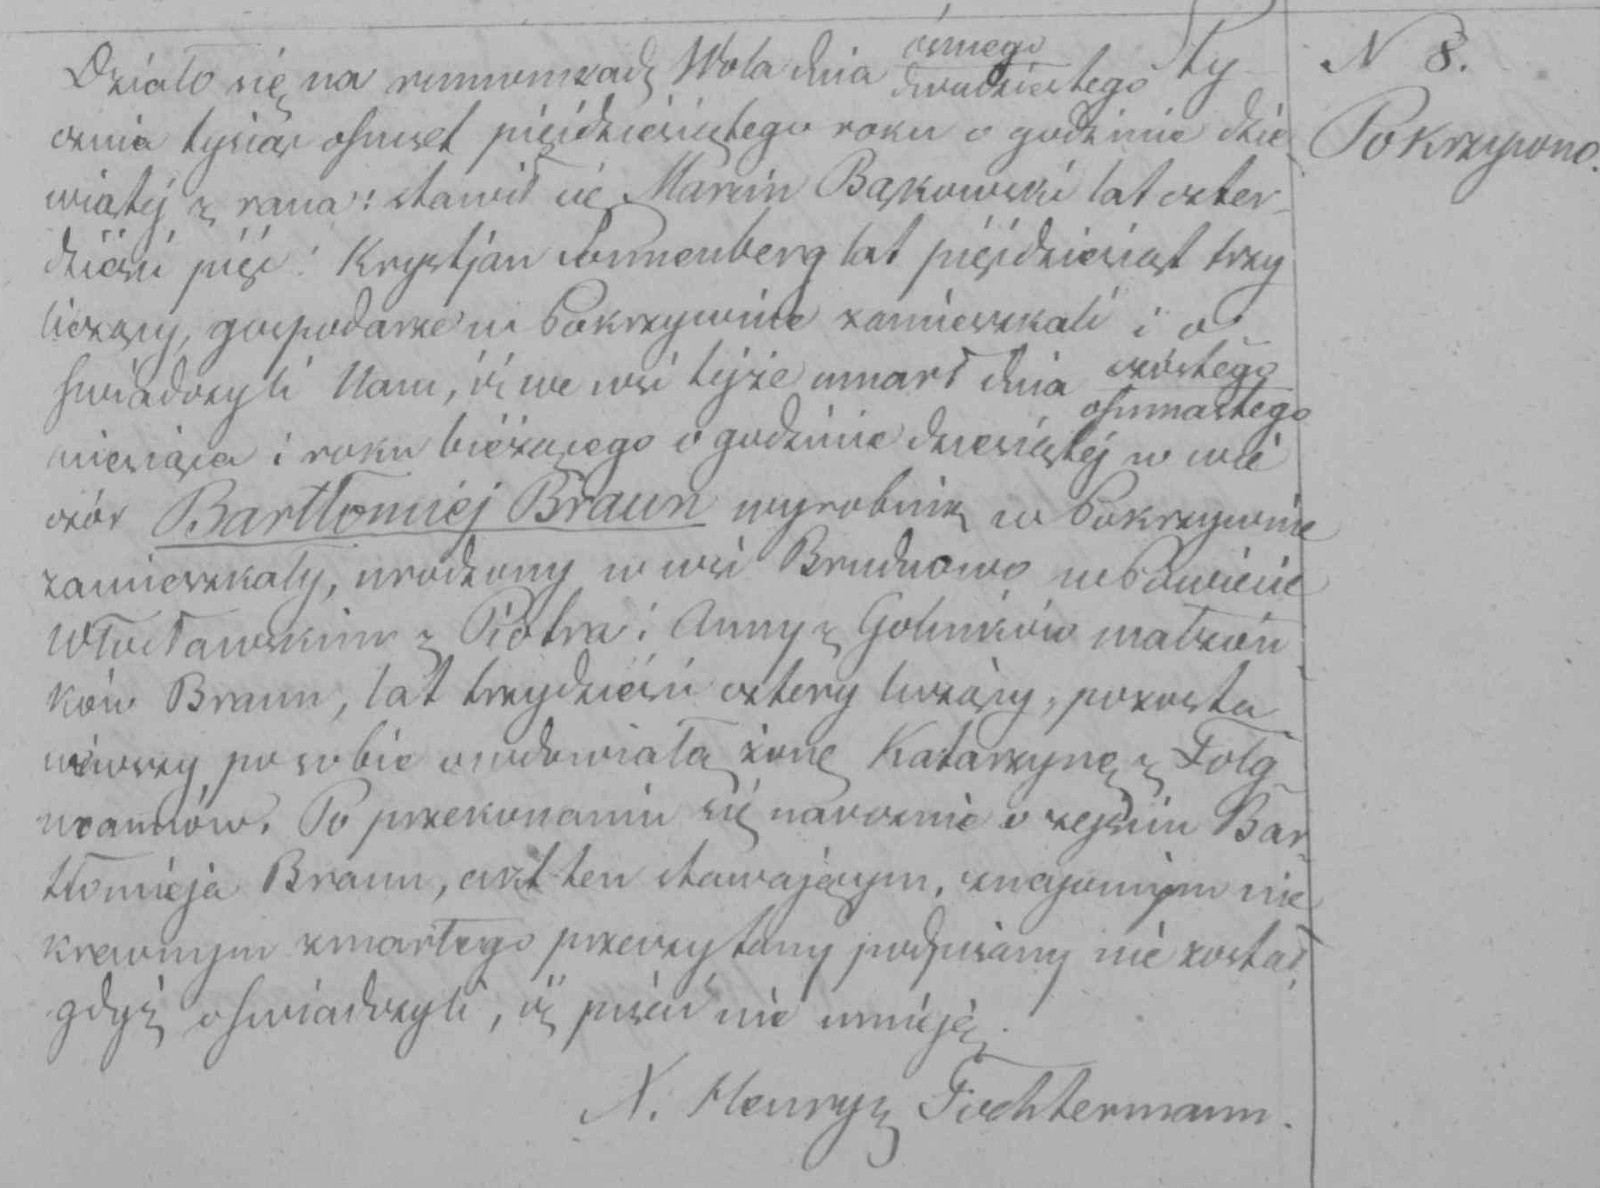 N 8.
Pokrzywno.
Działo się na rumunkach Wola dnia ósmego / dwudziestego Sty
cznia tysiąc ośmset pięśdziesiątego roku o godzinie dzie
wiątéj z rana: stawił się Marcin Bąkowski lat czter-
dzieści pięć i Krystjan Sonnenberg lat pięśdziesiąt trzy
liczący, gospodarze w Pokrzywnie zamieszkali i o
świadczyli Nam, iż we wsi tejże umarł dnia szóstego / ośmnastego
miesiąca i roku bieżącego o godzinie dziesiątéj w wie
czór Bartłomiéj Braun wyrobnik w Pokrzywnie
zamieszkały, urodzony w wsi Brudnowo w Powiecie
Włocławskim z Piotra i Anny z Golników małżon
ków Braun, lat trzydzieści cztery liczący, pozosta
wiwszy po sobie owdowiałą żonę Katarzynę z Folg
manów. Po przekonaniu się naocznie o zejściu Bar
tłomieja Braun, akt ten stawającym, znajomym nie
krewnym zmarłego przeczytany podpisany nie został,
gdyż oświadczyli, iż pisać nie umieją.
X. Henryk Fichtermann.